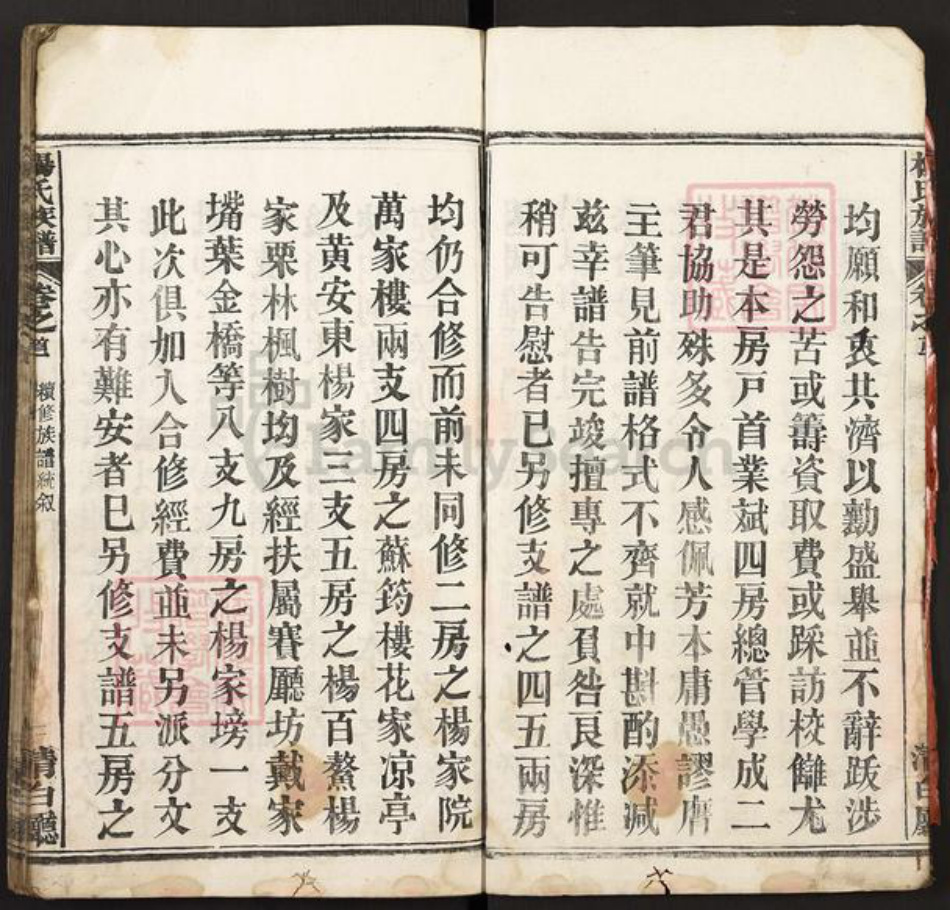 均願和衷共濟以勷盛舉並不辭跋涉
勞怨之苦或籌資取費或踩訪校讎尤
其是本房戸首業斌四房總管學成二
君協助殊多令人感佩芳本庸愚謬膺
主筆見前譜格式不齊就中斟酌添减
兹幸譜告完竣擅專之處負咎良深惟
稍可告慰者已另修支譜之四五兩房
均仍合修而前未同修二房之楊家院
萬家樓兩支四房之蘇筠樓花家凉亭
及黄安東楊家三支五房之楊百鰲楊
家栗林楓樹均及經扶屬賽廳坊戴家
嘴葉金橋等八支九房之楊家塝一支
此次俱加入合修經費並未另派分文
其心亦有難安者巳另修支譜五房之
楊氏族譜
卷之首
續修族譜統叙
清白廳
FamilySearch